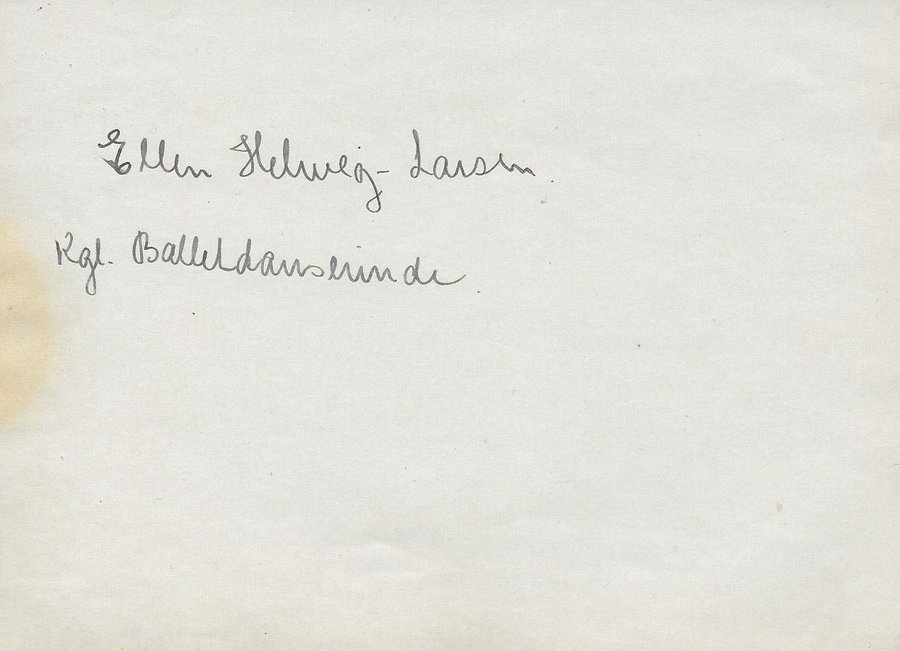 Ellen Helweg-Larsen.
Kgl. Balletdanserinde.